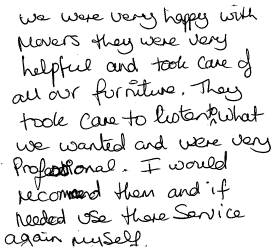 we were very happy with
Movers they were very
helpful and took care of
all our furniture. They
took care to listen to what
we wanted and were very
Professional. I would
recommend them and if
needed use there Service
again myself.